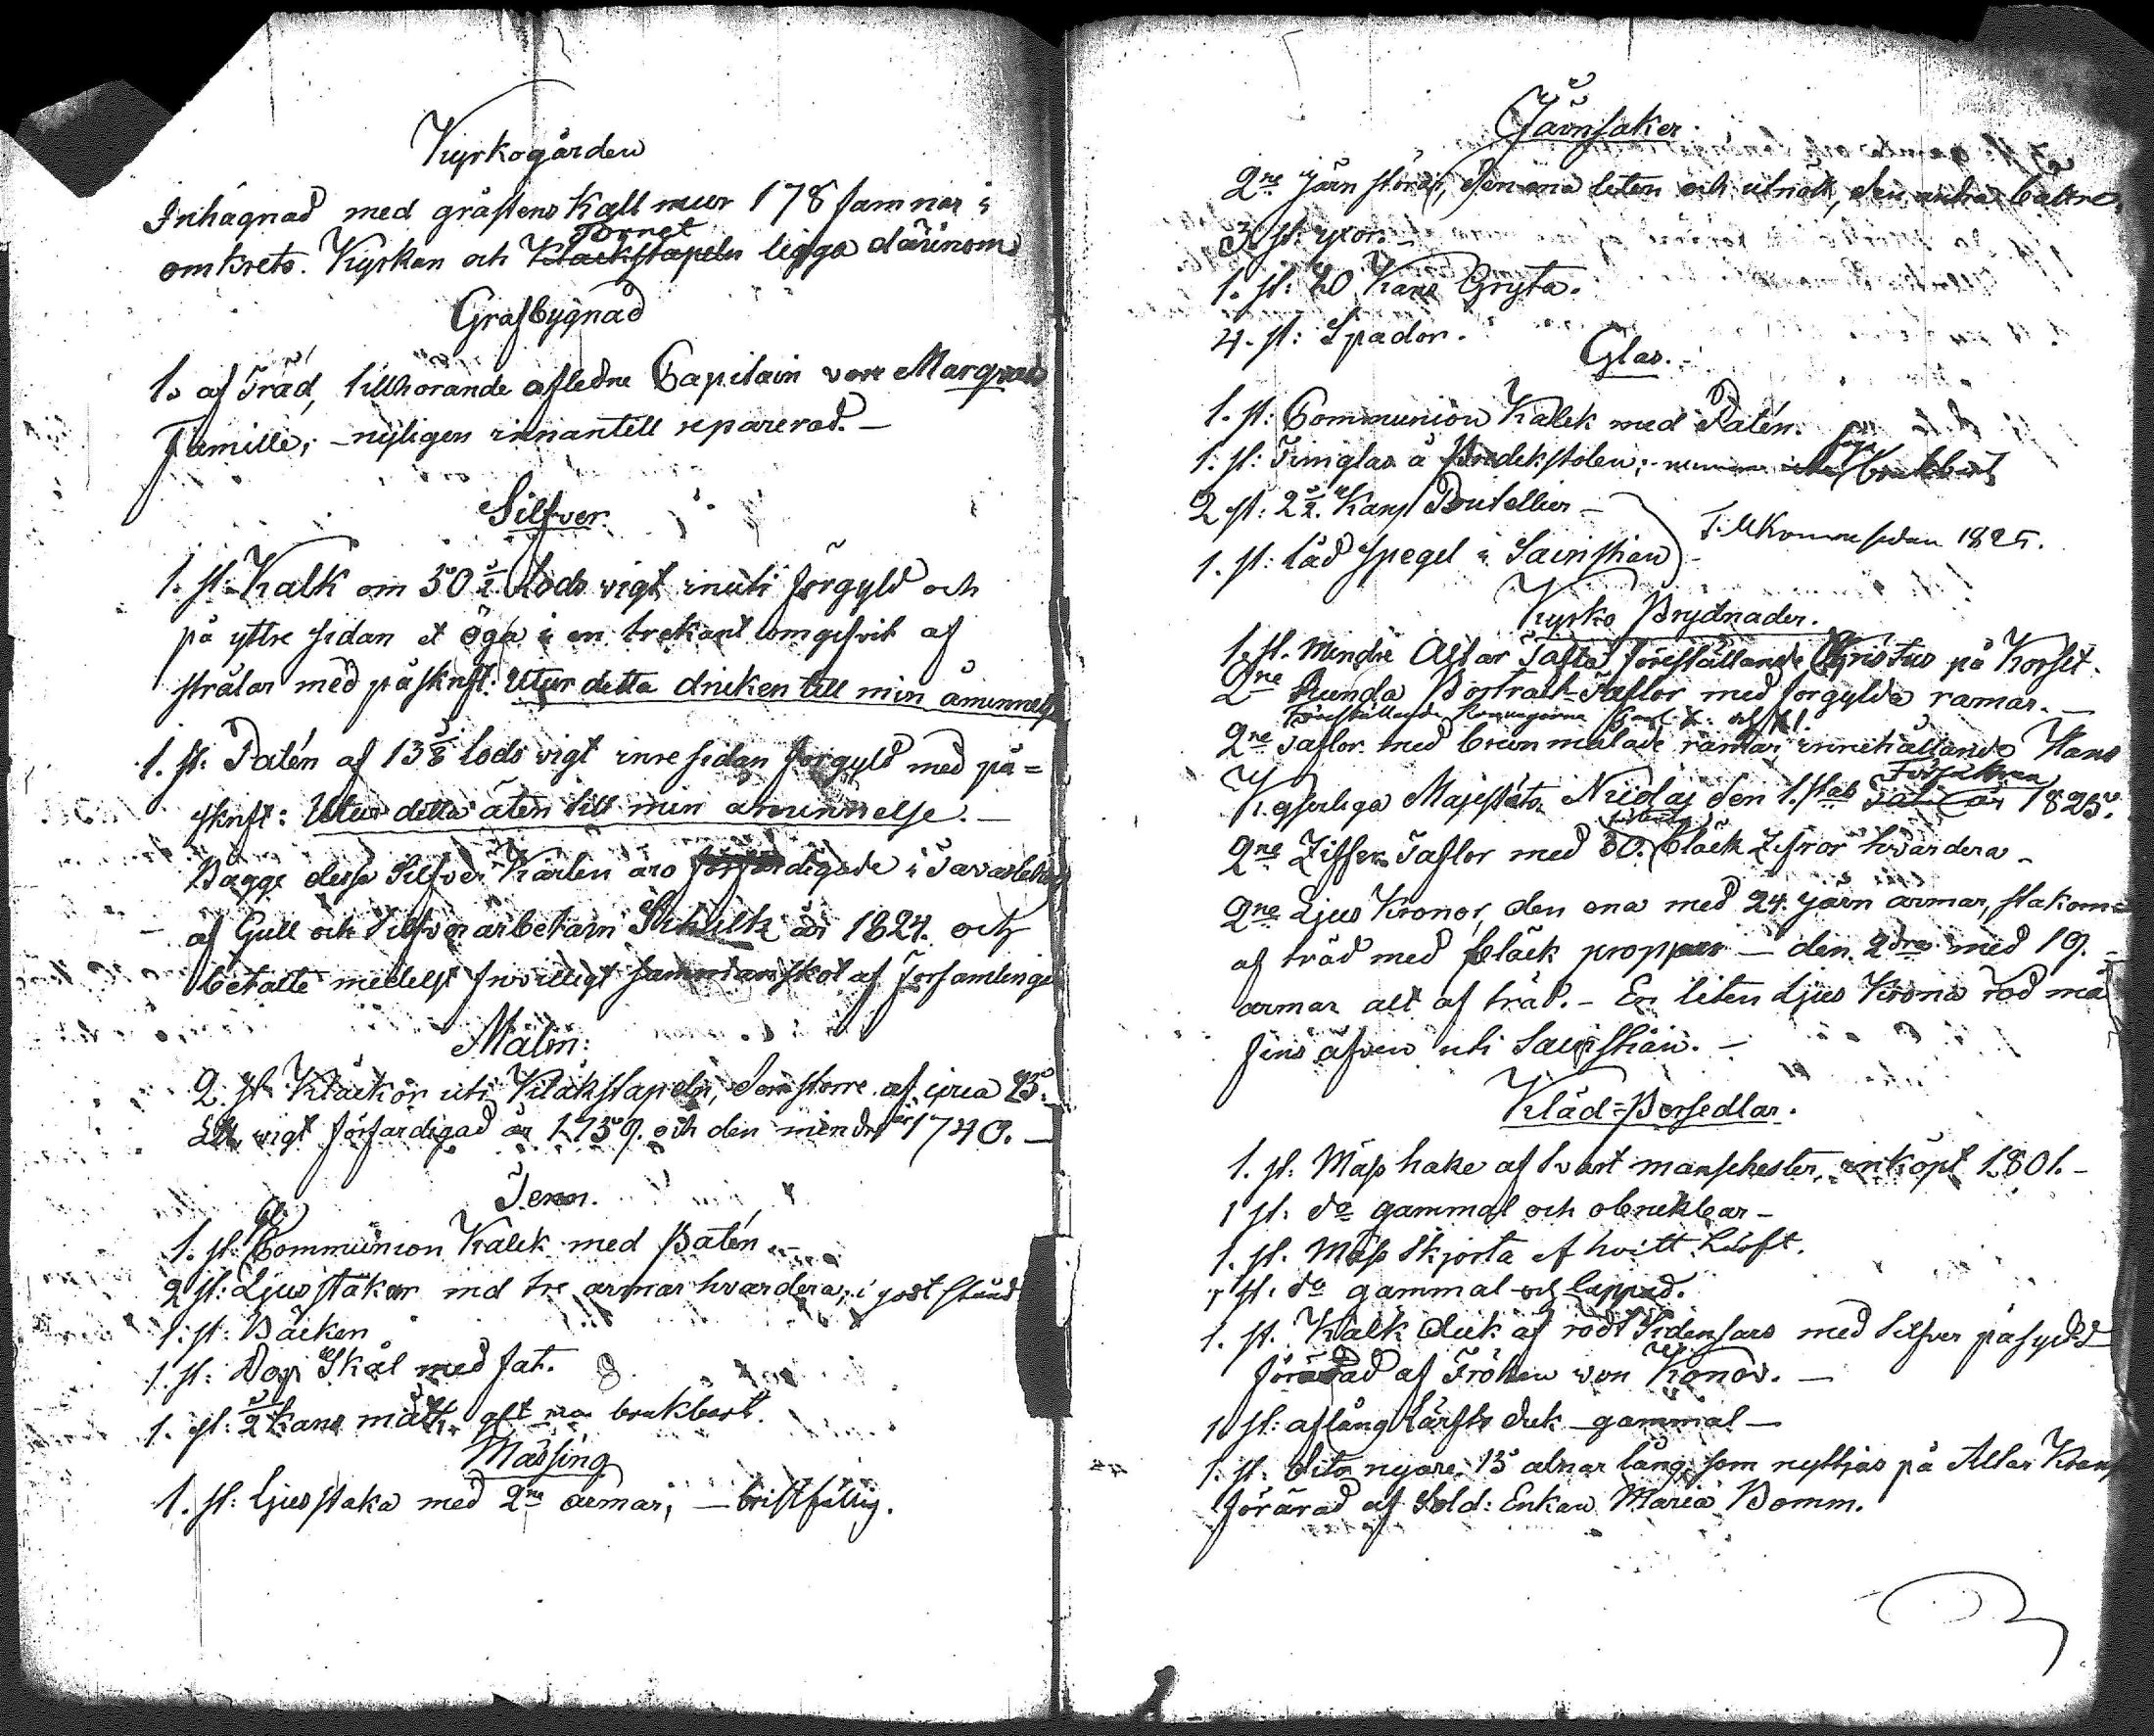 Kyrkogården
Inhägnad med gråstens Kall mur 178 famnar i
Tornet
omkrets. Kyrkan och Klackstapeln ligga därinom
Grafbygnad
1. af Träd, tillhörande afledne Capitain von Marqvard
Famille; - nyligen innantill reparerad. -
Silfver.
1. st: Kalk om 50 1/2 Lods vigt inuti förgyld och
på yttre sidan et öga i en trekant omgifvit af
strålar med påskrift: Utur detta dricken till min åminnelse
1. st: Patén af 13 5/8 Lods vigt inre sidan förgyld med på=
skrift: Utur detta äten till min åminnelse. -
Bägge dessa Silfver Kärlen äro förfärdigade i Tavastehus
af Gull och Silfver arbetarn Schultz år 1824. och
betalte medelst frivilligt sammanskot af Församlingen
Malm:
2. st Klackor uti Klåkstapeln, den större af circa 25.
vigt förfärdigad år 1759. och den mindre år 1740. -
Tenn.
1. st: Communion Kalck med Patén. -
2 st: Ljusstakar med tre armar hvardera, i godt stånd
1. st: Bäcken
1. st: Dop Skål med fat.
1. st: 1/2 Kans mått, brukbart.
Mässing
1. st: Ljusstaka med 2ne armar, - bristfällig.
Järnsaker.
2ne Järn störar, den ena liten och utnött, den andra battre.
3 st: yxor. -
1. st: 20 Kans Gryta.
4. st: Spador.
Glas. -
1. st: Communion Kalck med Patén.
1. st: Timglas å Predikstolen; brukbart
2 st: 2 1/2 Kans Boutellier -
1. st: Låd Spegel i Sacristian
Tillkomne sedan 1825.
Kyrko Prydnader.
1. st. mindre Altar Tafla föreställande Christus på Korset.
2ne Runda Portrait-Taflor med förgylda ramar. -
Föreställande Konungarne Carl X. och XI.
2ne Taflor med brun målade ramar, innehållande Hans
Försäkran
Kejserliga Majestäts Nicolaj den 1.stas år 1825.
2ne Ziffer Taflor med 30. bläck Zifror hvardera -
2ne Ljus Kronor, den ena med 24. järn armar, stakarne
af träd med bläck proppar - den 2dra med 19. -
armar alt af träd. - En liten Ljus Krona röd må
fins äfven uti Sacristian. -
Kläd=Persedlar.
1. st: Mäss hake af svart manschester, inköpt 1801. -
1 st: do gammal och obrukbar -
1. st. Mäss Skjorta af hvitt Lärft.
1 st: do gammal och lappad.
1. st. Kalk duk af rödt Sidensars med Silfver påsydd
förärad af Fröken von Konov. -
1 st: aflång Lärfts duk gammal -
1. st: dito nyare 15 alnar lång, som nyttjas på Altar Krans
förärad af Sold: Enkan Maria Bomm.